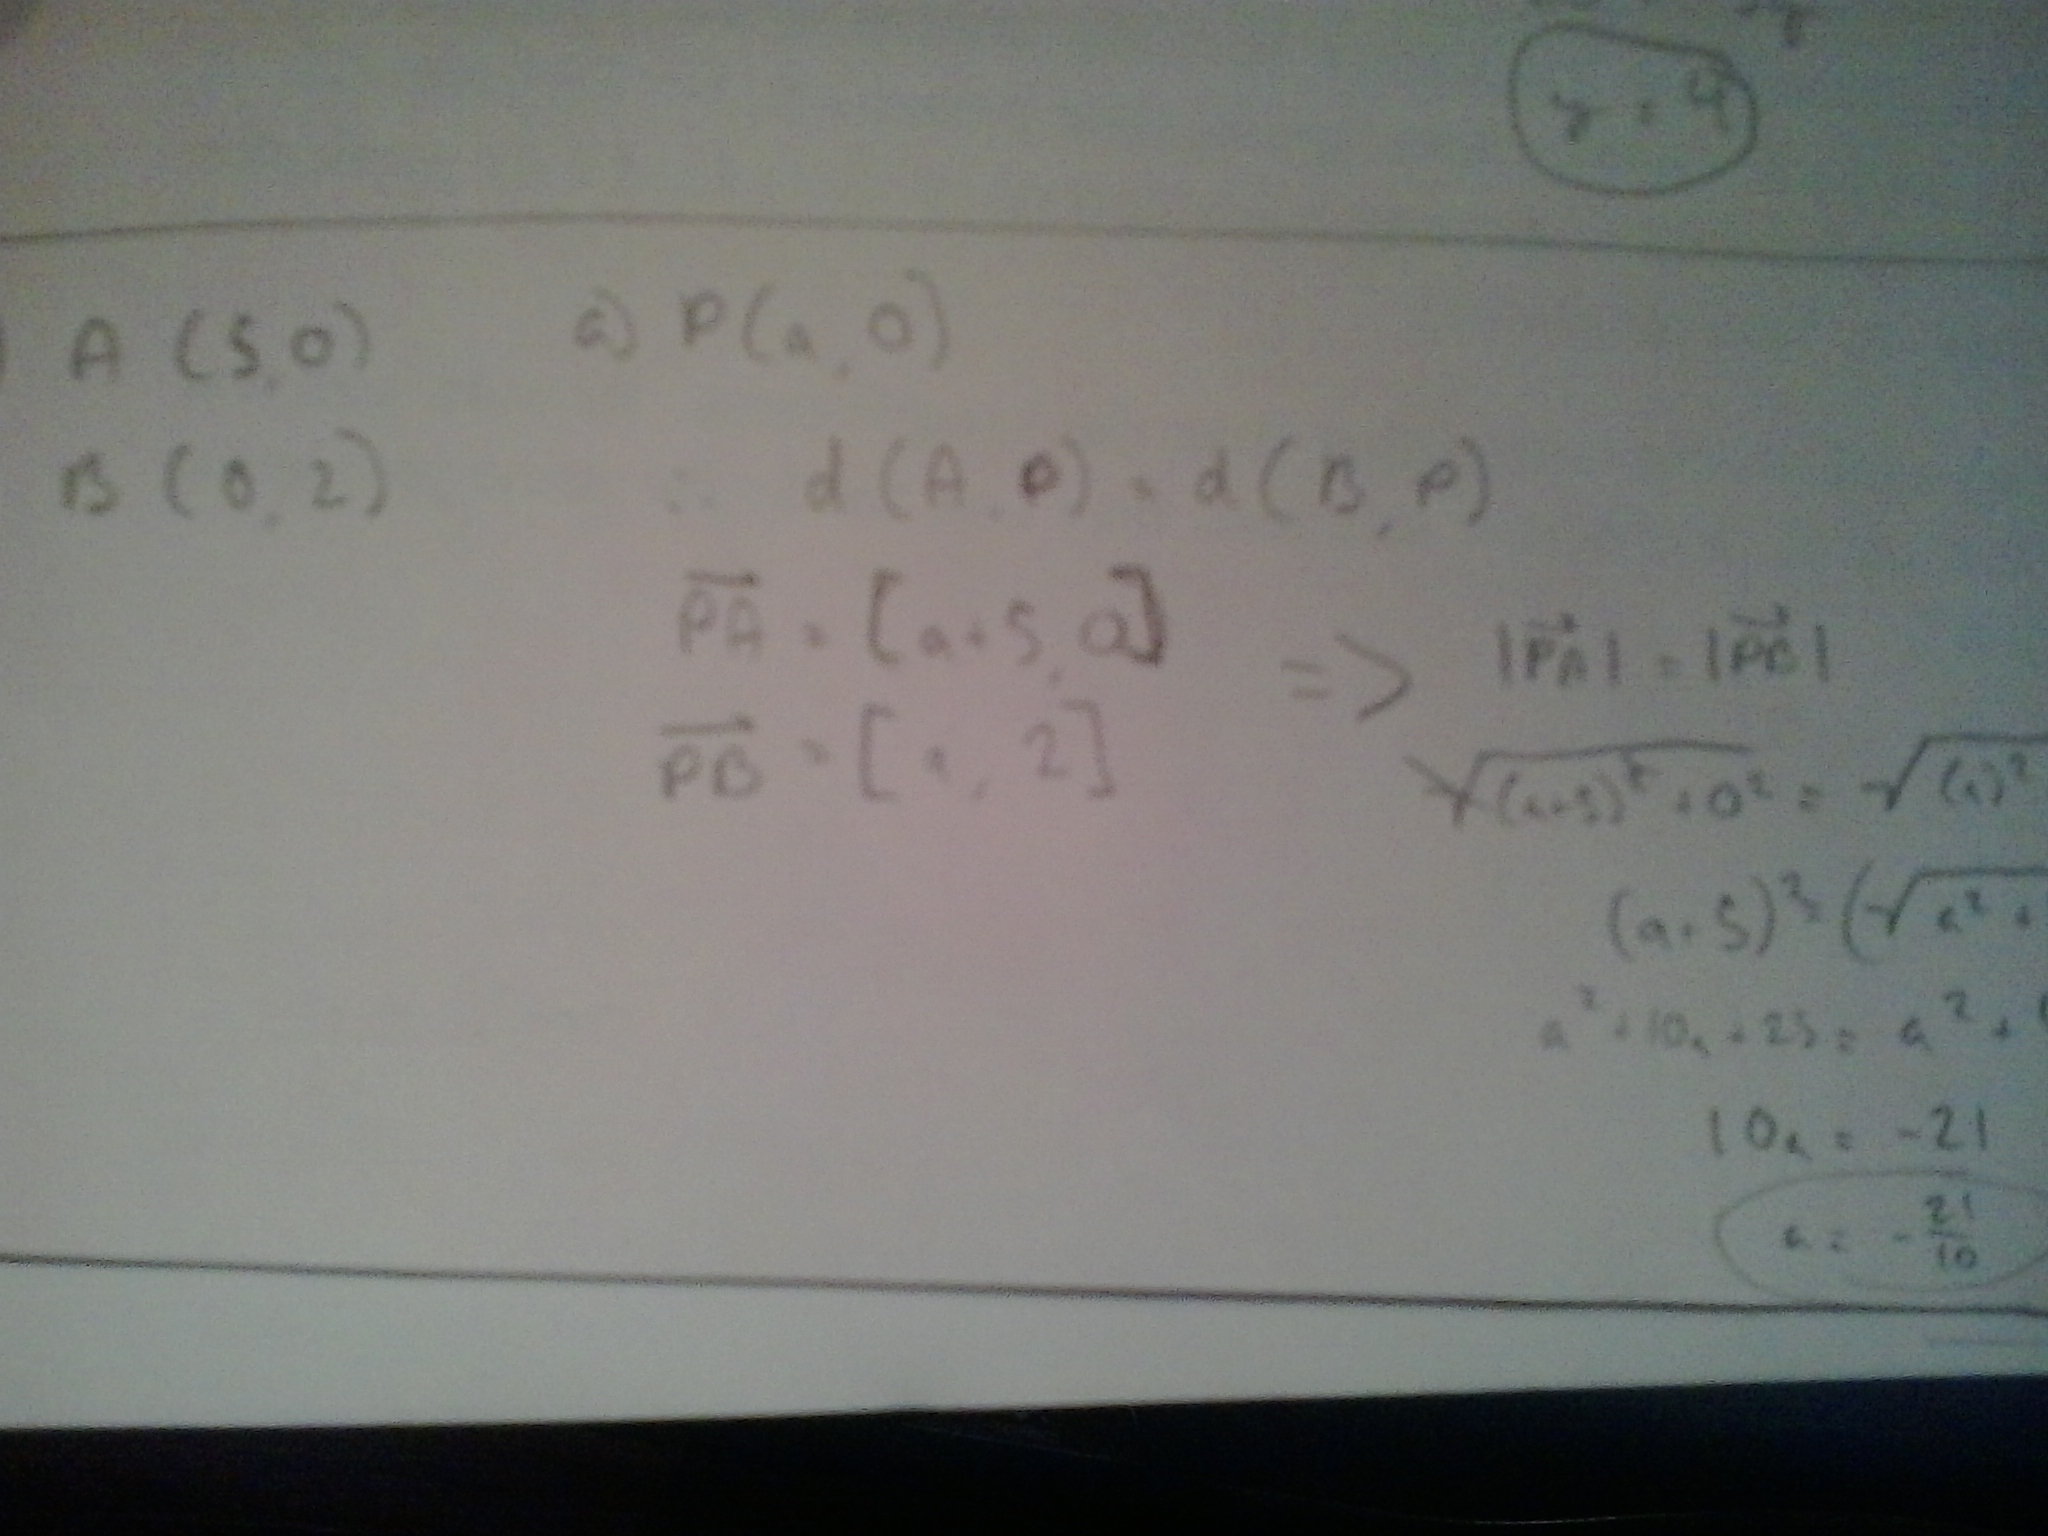 y = 4
A (5,0)
B (0,2)
a) P(a,0)
∴ d(A,P) = d(B,P)
PA = [a+5,0]
PB = [a, 2]
=> |PA| = |PB|
√(a+5)² + 0² = √(a)²
(a+5)² = (√a² +
a² + 10a + 25 = a² +
10a = -21
a = - 21/10